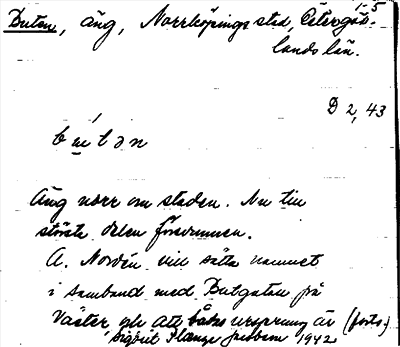 1-5
Buten, äng, Norrköpings stad, Östergöt-
lands län.
D 2, 43
Äng norr om staden. Nu till
största delen försvunnen.
A. Nordén vill sätta namnet
i samband med Butgatan på
Väster, och att båtes ursprung är (forts.)
Sigurd 1942